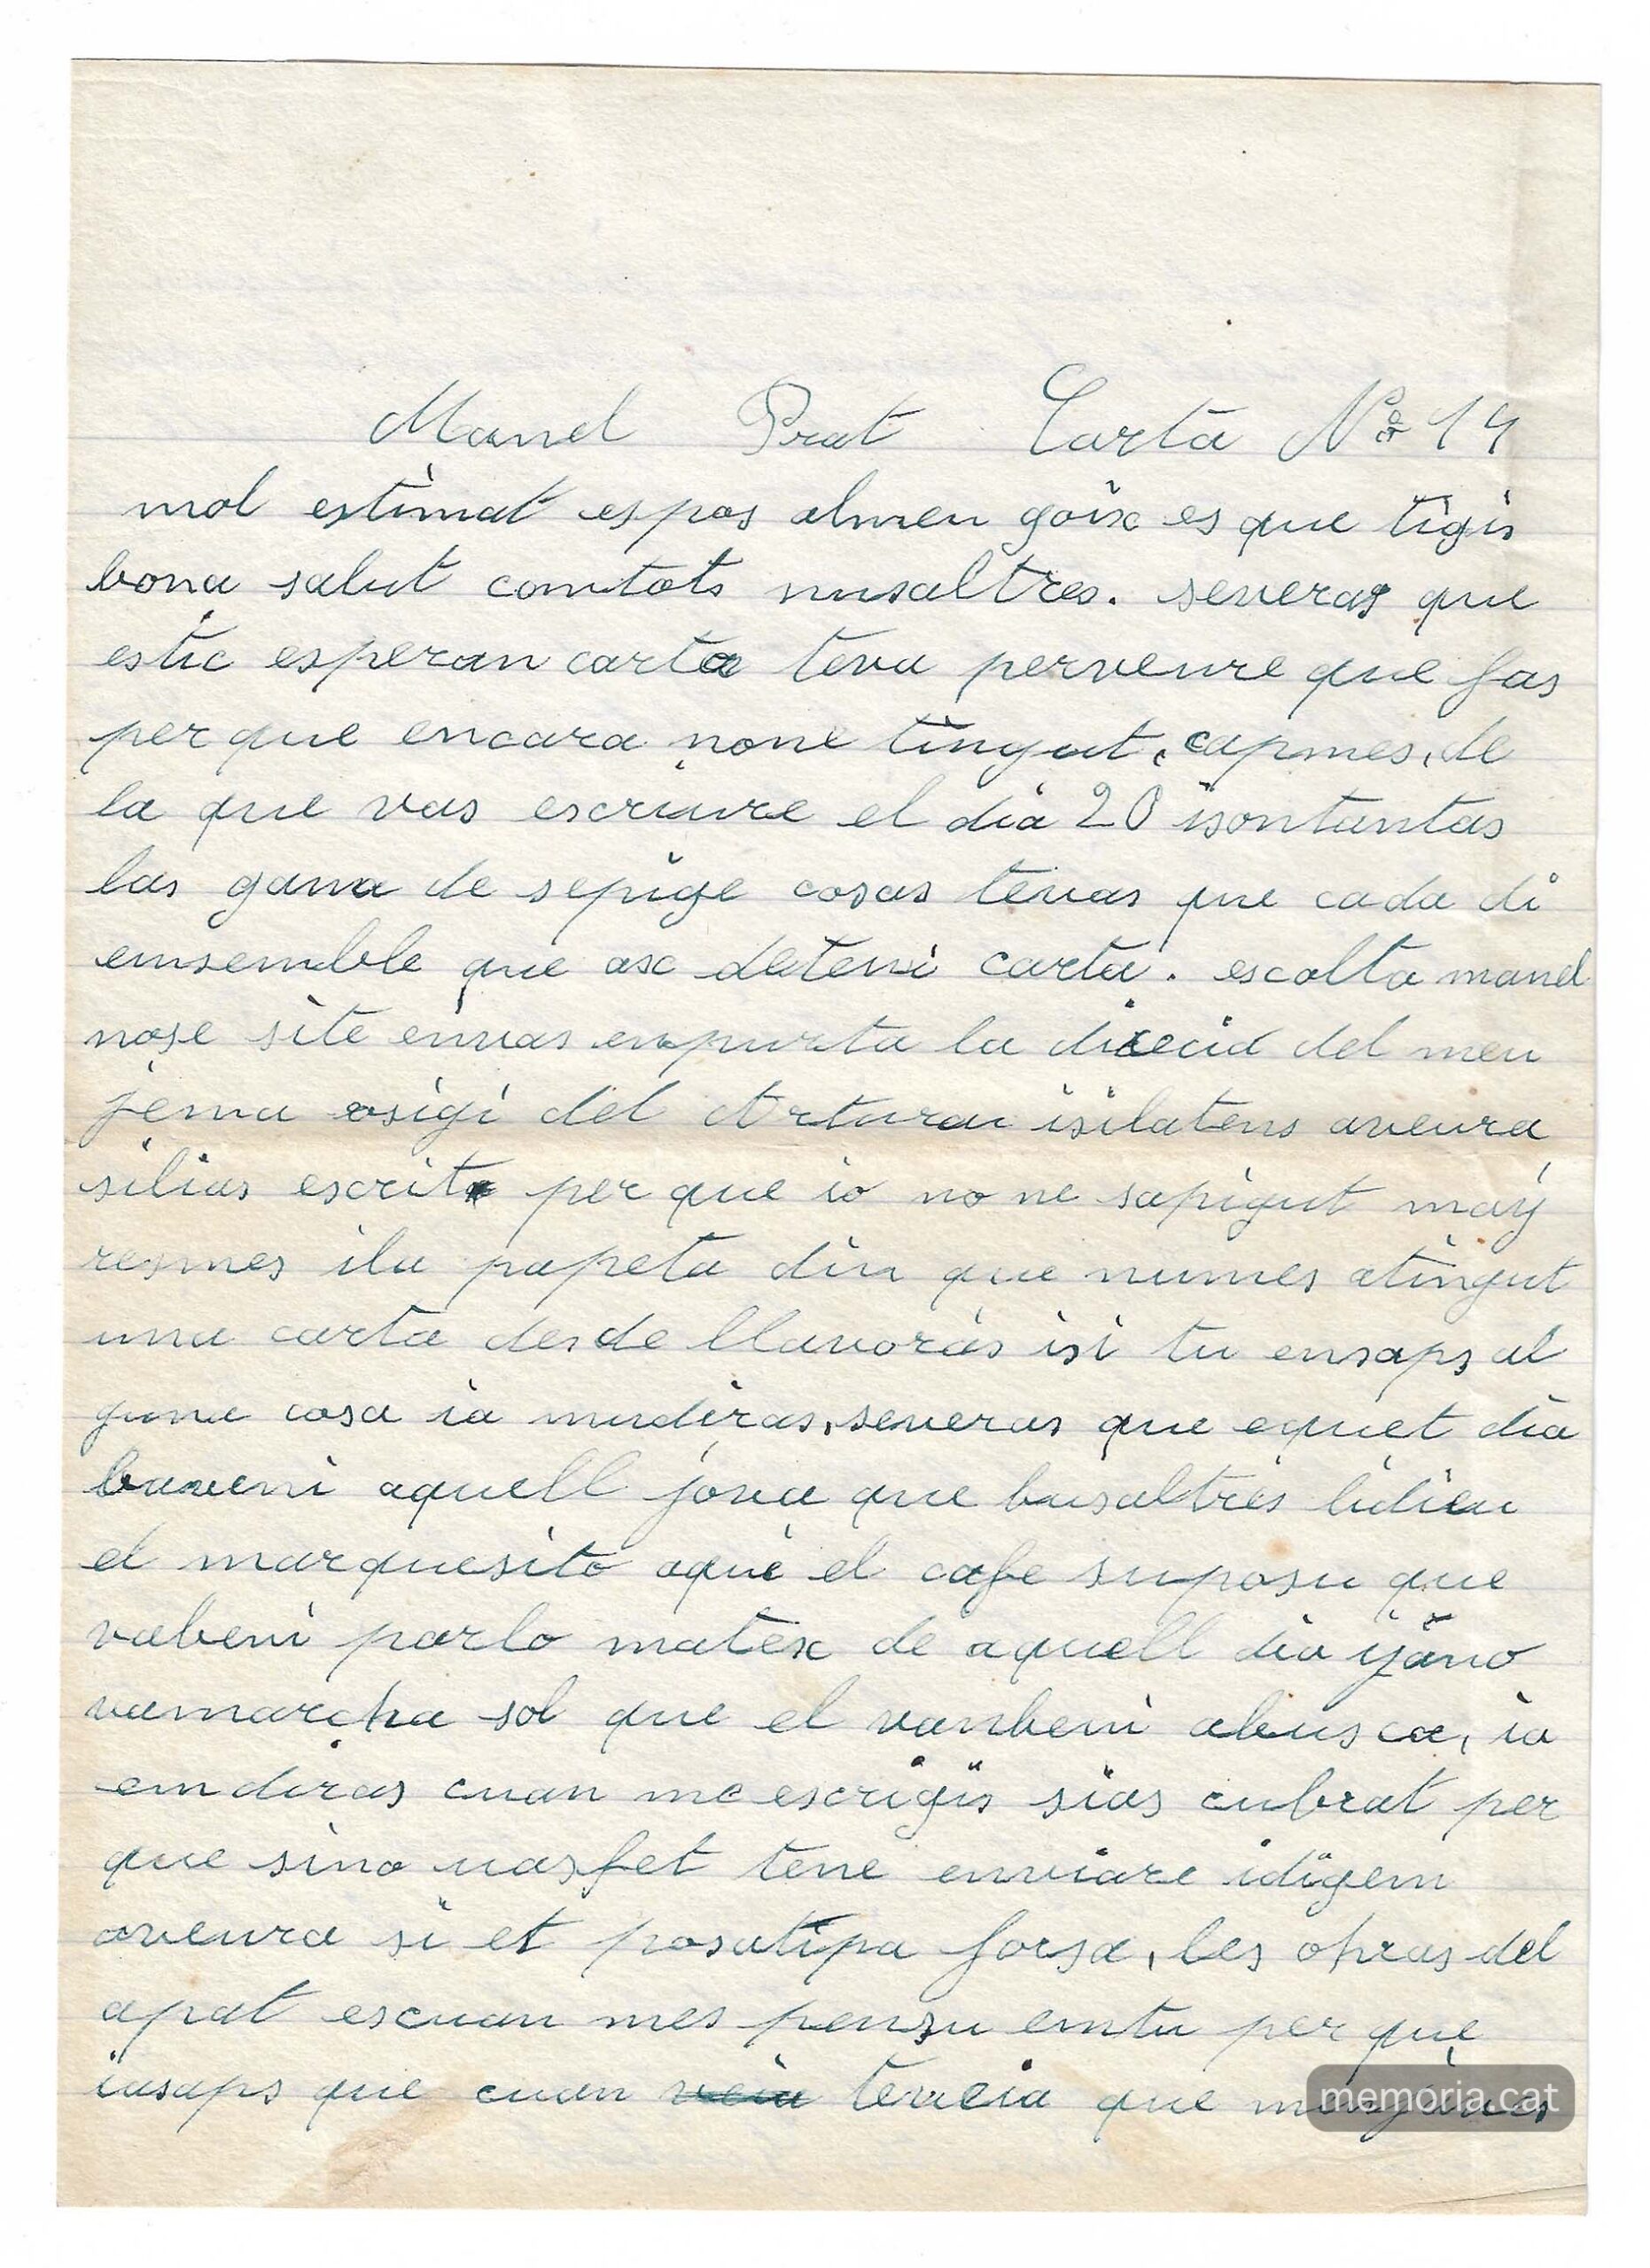 Manel Prat Carta Nº 14
mol estimat espos almeu goix es que tigis
bona salut comtots nusaltres. severas que
estic esperan carta teva perveure que fas
per que encara none tingut, capmes, de
la que vas escriure el dia 20 isontantas
las gana de sepige cosas tevas que cada di
emsemble que asc deteni carta. escolta manel
nose site envas empurta la direcio del meu
jerma osigi del Arturu isilatens aveura
silias escrit per que io no ne sapigut may
resmes ila papeta diu que numes atingut
una carta desde llavoras isi tu ensaps al
guna cosa ia mudiras, severas que equet dia
baveni aquell jova que busaltres lidieu
el marquesito aqui el cafe suposu que
vabeni parlo matex de aquell dia ijano
vamarcha sol que el vanbeni abusca, ia
emdiras cuan me escrigis sias cubrat per
que sino uasfet tene enviare idigem
aveura si et posatipa forsa, les opras del
apat escuan mes pensu emtu per que
iasaps que cuan teveia que minjaves
memoria.cat